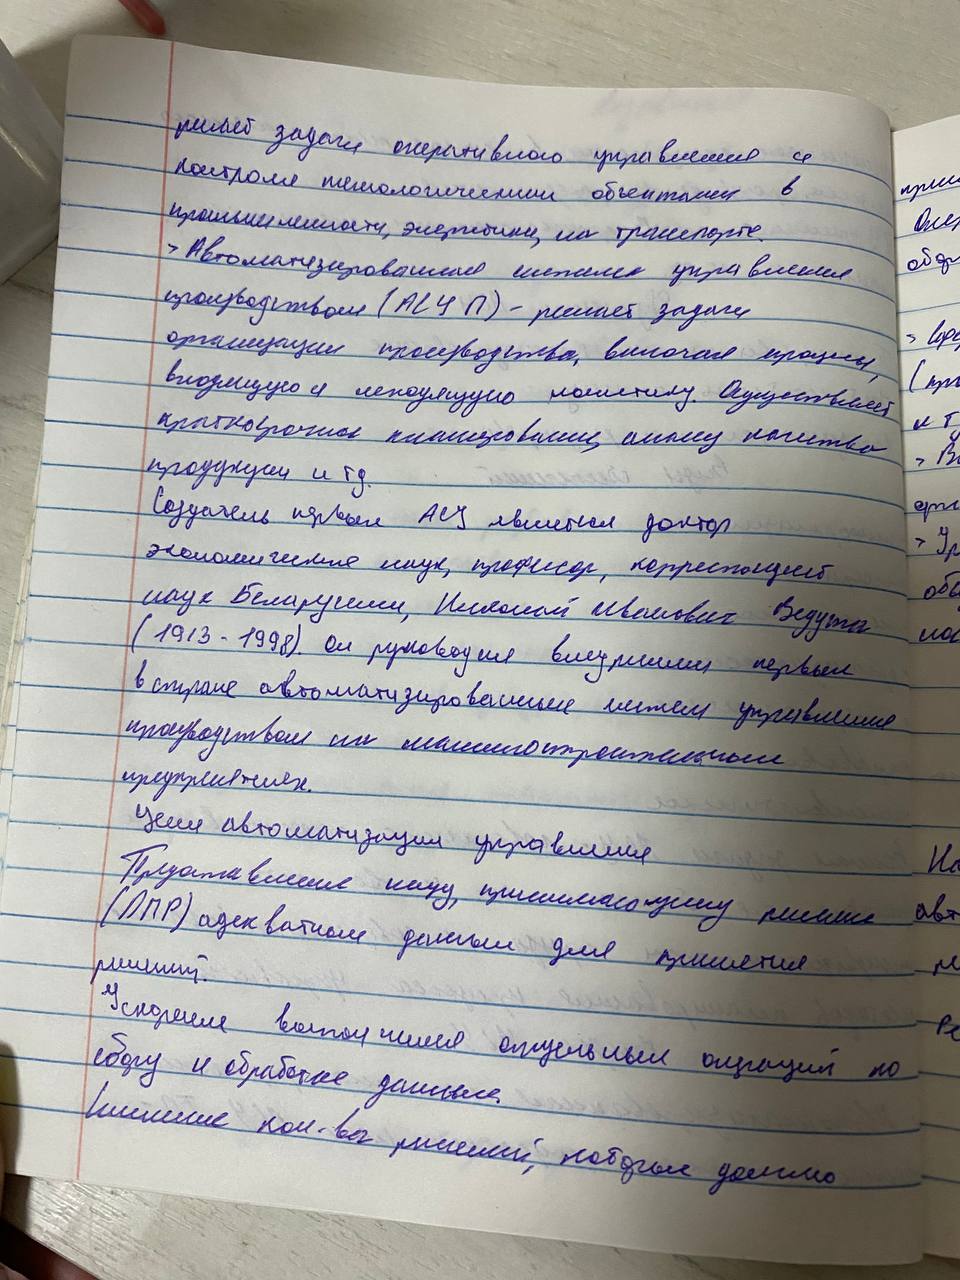 решает задачи оперативного управления и
контроля технологическими объектами в
промышленности, энергетике, на транспорте.
> Автоматизированная система управления
производством (АСУ П) - решает задачи
организации производства, включая процессы,
входящую и исходящую логистику. Осуществляет
краткосрочное планирование, анализ качества
продукции и тд.
Создатель первых АСУ является доктор
экономических наук, професор, корреспондент
наук Белоруссии, Николай Иванович Ведута
(1913 - 1998). Он руководил внедрением первых
в стране автоматизированных систем управления
производством на машиностроительных
предприятиях.
Цели автоматизации управления
Предоставление лицу, принимающему решение
(ЛПР) адекватных данных для принятия
решений.
Ускорение выполнения отдельных операций по
сбору и обработке данных
Снижение кол-ва решений, которые должно
прин
Опер
обр
> Вор
(пр
и т
> В
орг
> Ур
обо
нос
На
авт
Ре